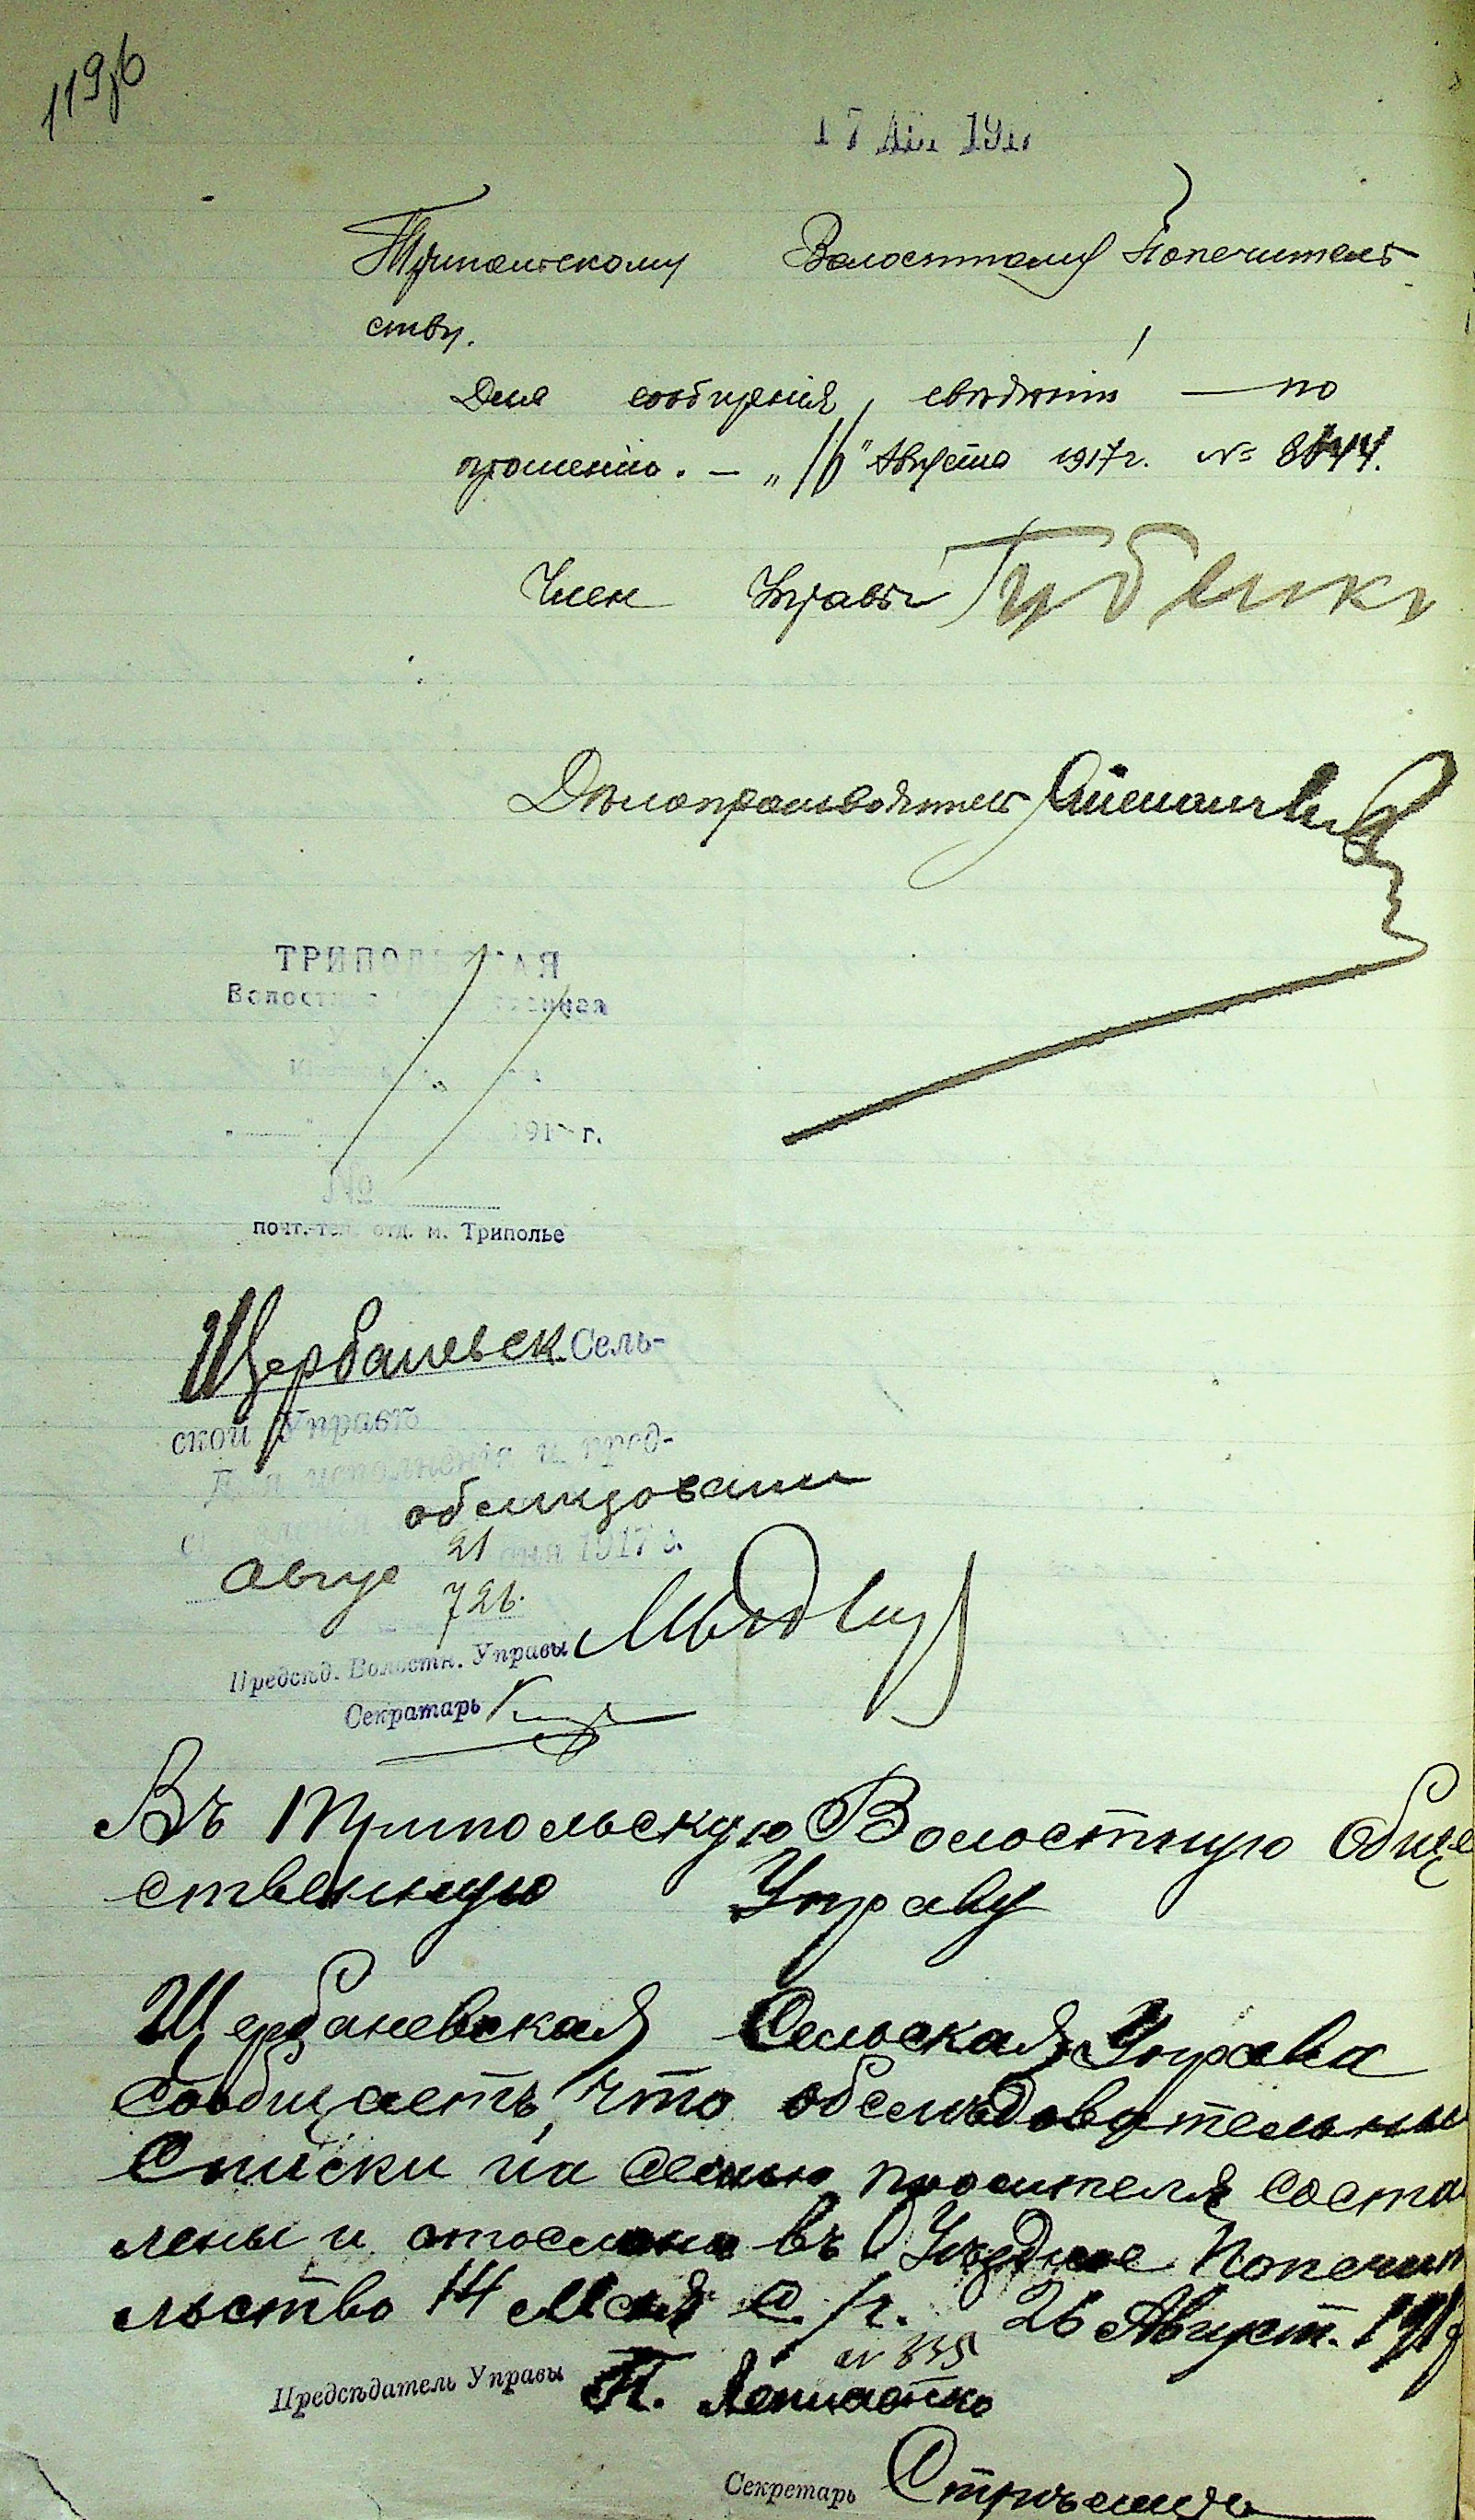 119об
17 Авг 191
Трипольскому Волостному Попечитель-
ству.
Для сообщенія свѣдѣній — по
прошенію. — „16" Августа 1917 г. № 8644.
Член Управы
Дѣлопроизводитель
ТРИПОЛЬСКАЯ
Волостная Общественная
191 г.
№
почт.-тел. отд. м. Триполье
Щербаневск. Сель-
ской Управѣ
Для исполненія и пред-
обслѣдованія
ставленія дня 1917 г.
Авгус 21
726.
Предсѣд. Волостн. Управы
Секратарь
Въ Трипольскую Волостную Обще
ственную Управу
Щербаневская Сельская Управа
сообщаетъ, что обслѣдовательны
списки на семью просителя соста
лены и отосланы въ Уѣздное Попечит
льство 14 Мая с/г. 26 Август. 1917
№ 335
Предсѣдатель Управы П.
Секретарь